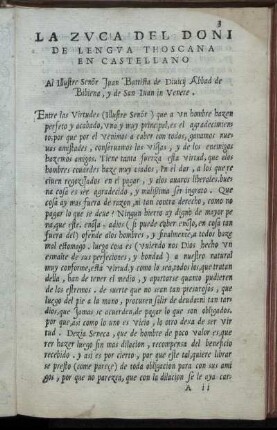 3
LA ZVCA DEL DONI
DE LENGVA THOSCANA
EN CASTELLANO
Al Illustre Señor Juan Battista de Diuicj Abbad de
Bibiena, y de San Iuan in Venere.
Entre las Virtudes (Illustre Señor) que a vn hombre hazen
perfeto y acabado, vna y muy principal, es el agradecimien
to. por que por el venimos a caber con todos, ganamos nue-
uas amistades, conseruamos las viejas, y de los enemigos
hazemos amigos. Tiene tanta fuerza esta virtud, que a los
hombres couardes haze muy osados, en el dar, a los que re
ciben regozijados en el pagar, y a los auaros liberales. bue
na cosa es ser agradecido, y malissima ser ingrato. Que
cosa ay mas fuera de razon, ni tan contra derecho, como no
pagar lo que se deue? Ningun hierro ay digno de mayor pe
na, que este. ensusta a dios (si puede caber ensusta, en cosa tan
fuera de) ofende a los hombres, y finalmente a todos haze
mal estomago. luego cosa es (vniendo nos Dios hecho vn
esmalte de sus perfeciones, y bondad) a nuestro natural
muy conforme, esta virtud. y como lo sea, todos los, que tratan
della, han de tener el medio, y apartarse quanto pudieren
de los estremos. de suerte que no sean tan prestos, que
luego del pie a la mano, procuren salir de deuda. ni tan tar
dios, que Jamas se acuerden, de pagar lo que son obligados.
por que, asi como lo uno es vicio, lo otro dexa de ser vir
tud. Dezia Seneca, que de hombre de poco valor es, que
rer hazer luego sin mas dilacion, recompensa del beneficio
recebido. y asi es por cierto, por que este tal, quiere librar
se presto (como pareze) de toda obligacion para con sus ami
gos, por que no parezca, que con la dilacion se le aya car-
A ii